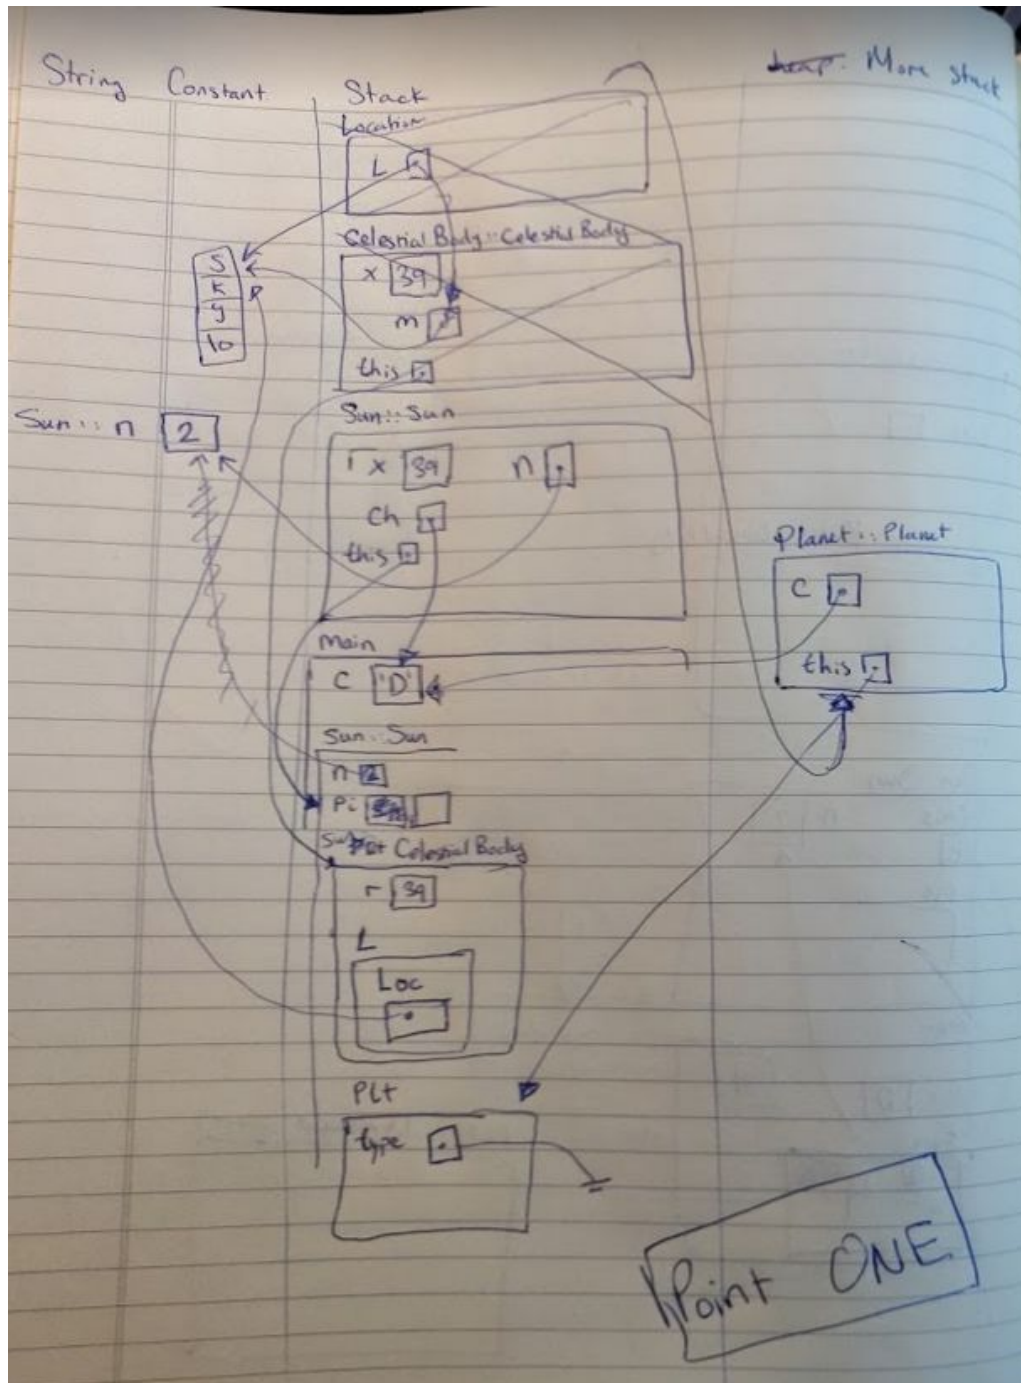 String Constant
Stack
heap: More Stack
Location
L
Celestial Body::Celestial Body
x 39
m
this
S
k
y
\0
Sun::n 2
Sun::Sun
r x 39 n
ch
this
Planet::Planet
C
this
Main
C 'D'
Sun::Sun
n 2
Pi
Celestial Body
r 39
L
Loc
PLt
type
Point ONE